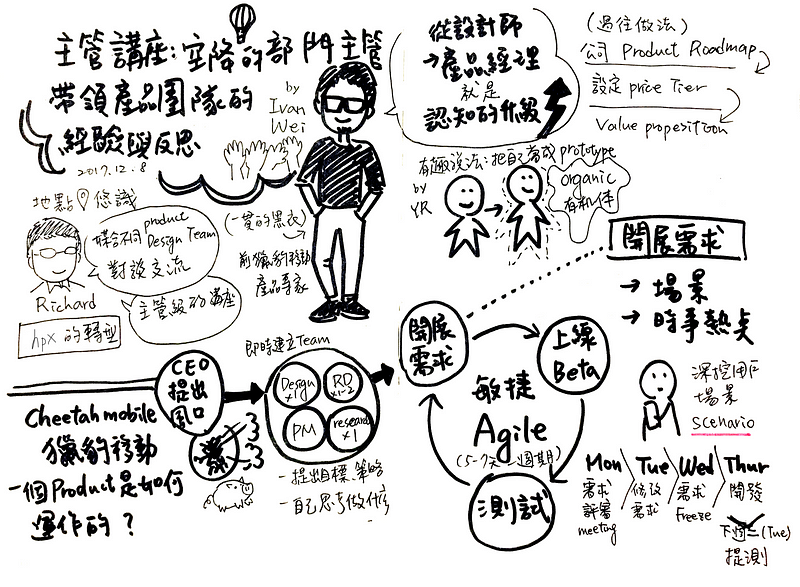 主管講座:空降的部門主管
帶領產品團隊的
經驗與反思
2017.12.8
by
Ivan
Wei
地點 悠識
媒合不同 product
Design Team
對談交流
主管級的講座
Richard
hpx 的轉型
(一貫的黑衣)
前獵豹移動
產品專家
從設計師
→產品經理
就是
認知的升級
(過往做法)
公司 Product Roadmap
設定 price Tier
Value propesitoon
有趣說法:把自己當成 prototype
by
YR
organic
有机体
開展需求
→ 場景
→ 時事熱点
深挖用戶
場景
scenario
CEO
提出
風口
Cheetah mobile
獵豹移動
一個Product是如何
運作的?
即時建立Team
Design
x1
RD
x1~2
PM
research
x1
-提出目標、策略
-自己思考做什麼
開展
需求
上線
Beta
測試
敏捷
Agile
(5-7天一週期)
Mon
需求
評審
meeting
Tue
修改
需求
Wed
需求
Freeze
Thur
開發
下週二(Tue)
提測